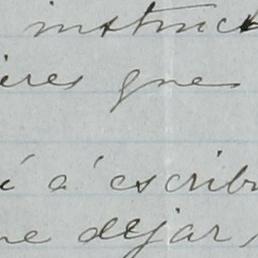 instruc
ieres que
í á escrib
ne dejar,